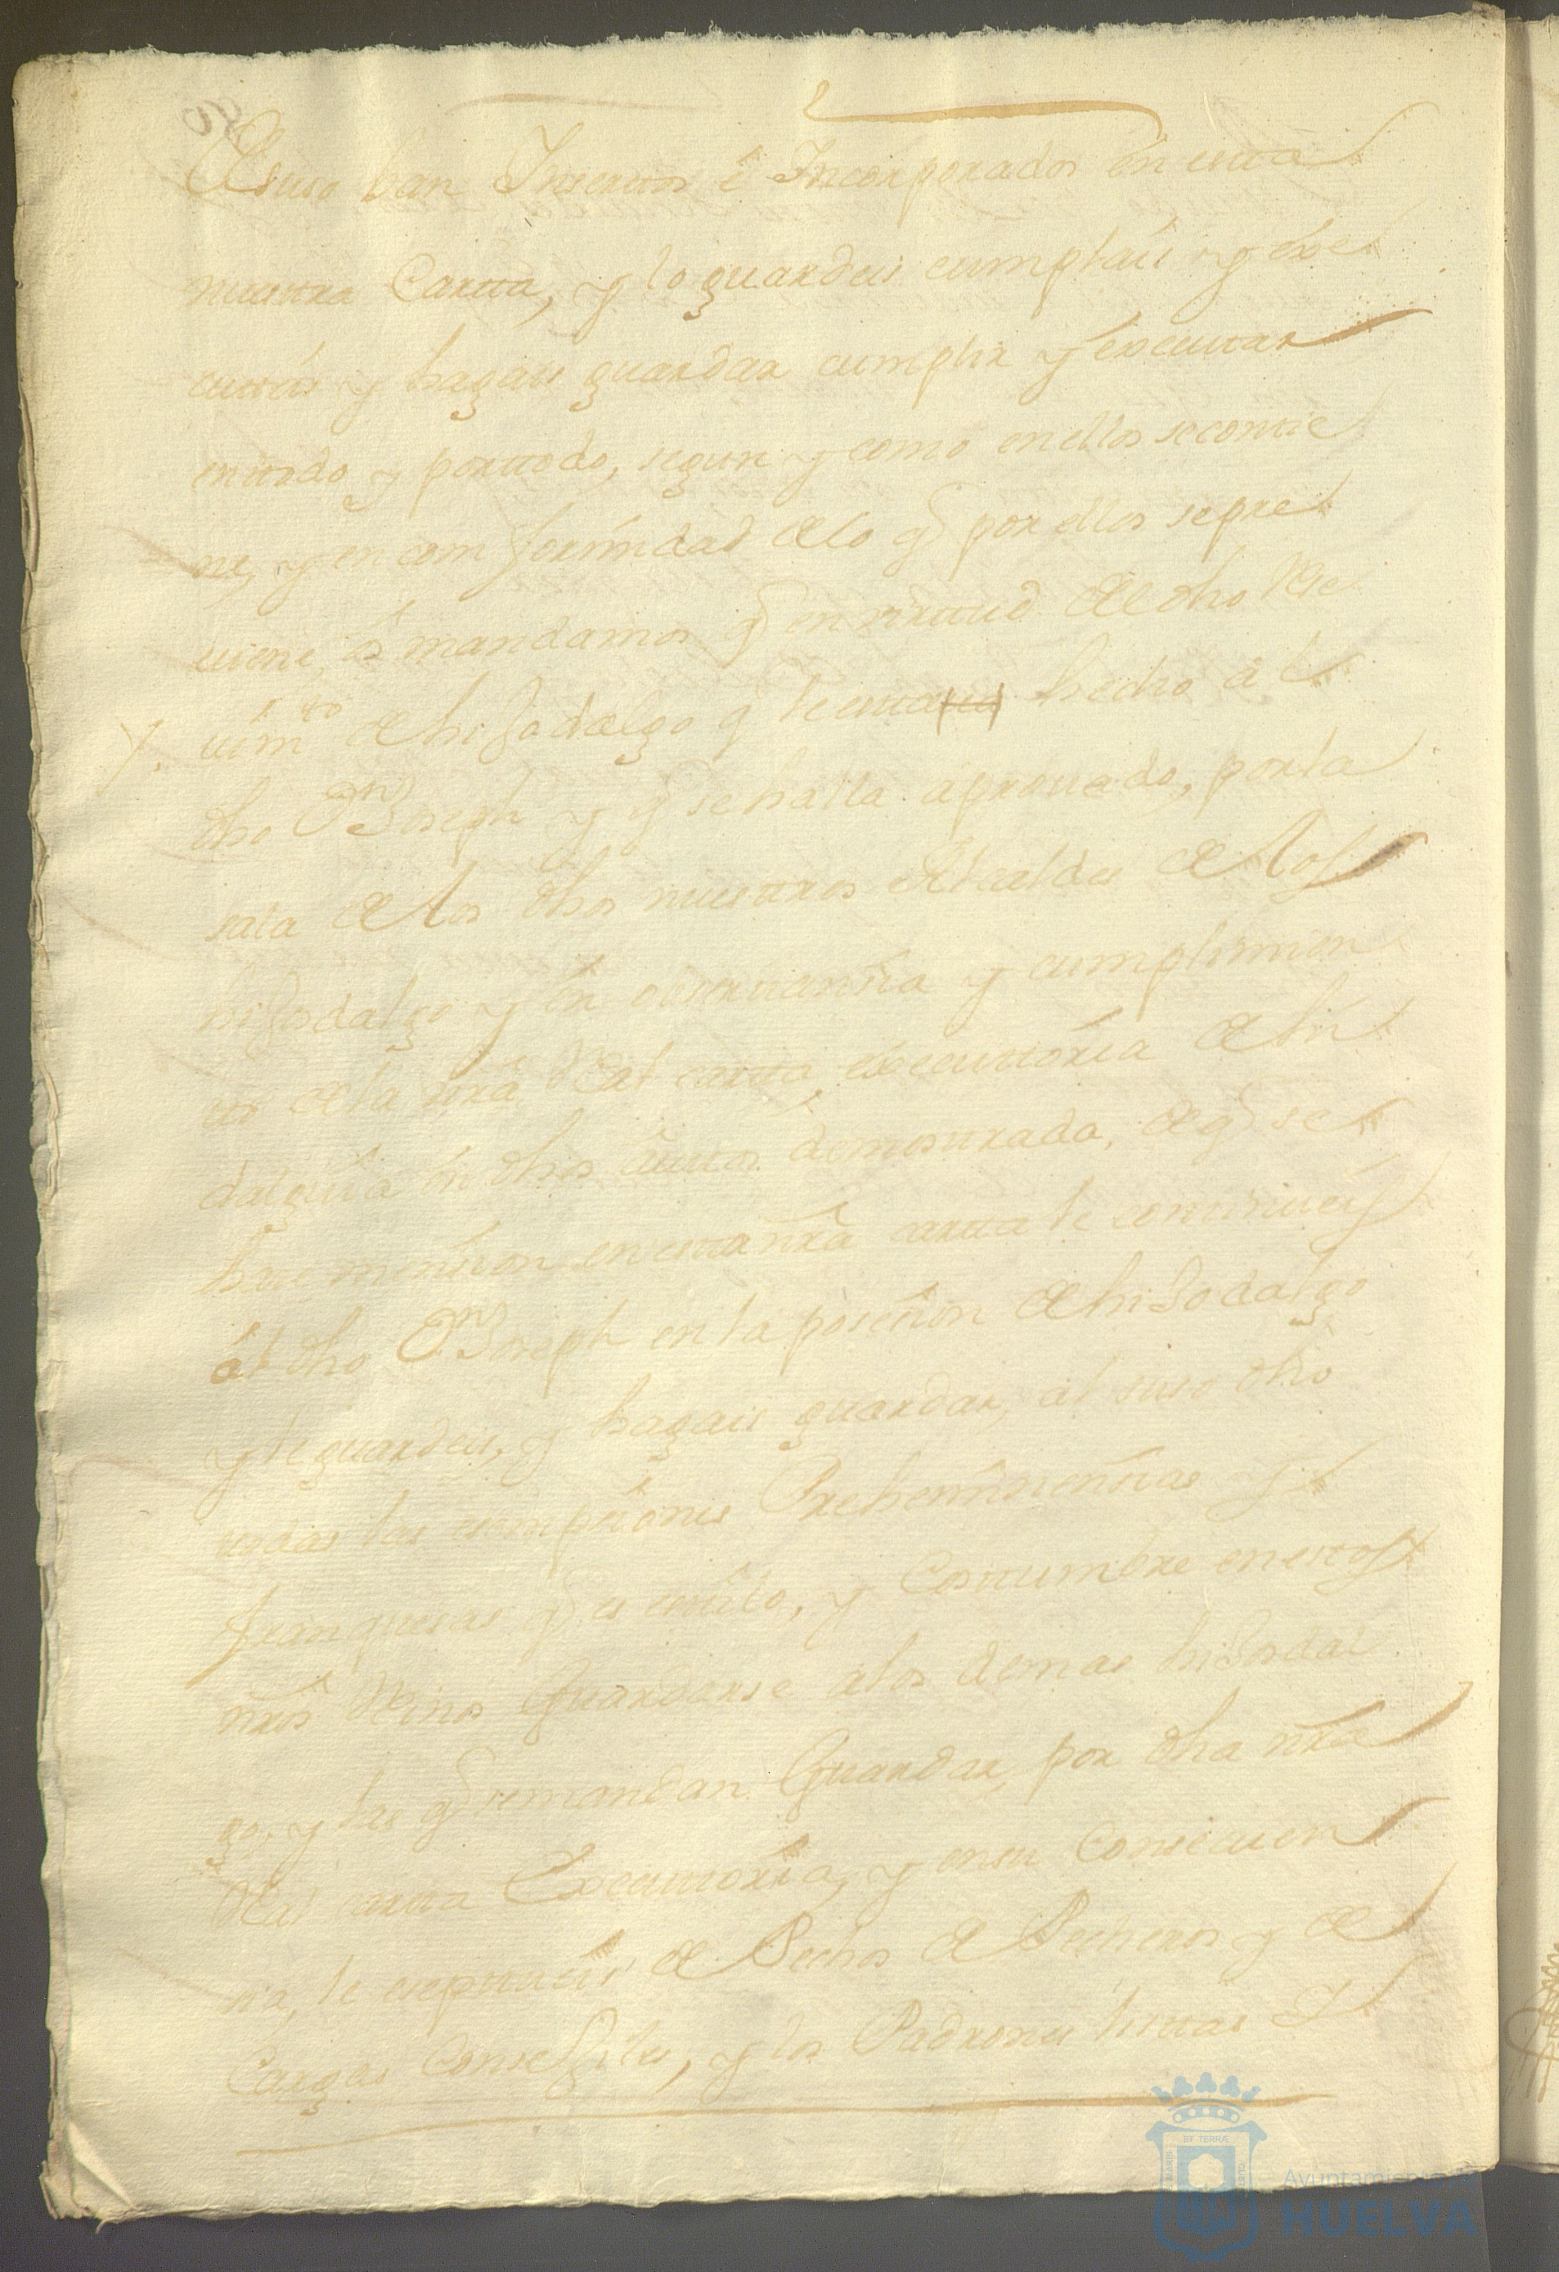 Desuso ban Insertos é Incorporados en esta
nuestra Carta, y lo guardeis cumplais y exe
cuteis y hagais guardar cumplir y executar
entodo y portodo, segun y como enellos secontie
ne, y en comformidad delo q̃ por ellos sepre
uiene, os mandamos q̃ en virtud del dho Rẽ
uim.to de hijodalgo q̃ le esta hecho á el
dho D.n Joseph y q̃ se halla aprouado, porla
sala de los dhos nuestros Alcaldes de los
hijosdalgo y en obseruanćia y cumplimien
to dela nrã Real carta executoria de hi
dalguia en dhos autos demostrada, de q̃ se
haze menćion en esta nrã carta le continueis
al dho D.n Joseph en la poseśion de hijodalgo
y le guardeis, y hagais guardar, al suso dho
todas las esempćiones Preheminenćias y
franquesas q̃ es estilo, y Costumbre enestos
nrõs Rẽinos Guardarse alos demas hijosdal
go, y las q̃ semandan Guardar, por dha nrã
Real carta Executoria, y ensu Consecuen
ćia, le exeptueis de Pechos de Pecheros y de
Cargas Consejiles, y los Padrones listas Y
Ayuntamiento de
HUELVA